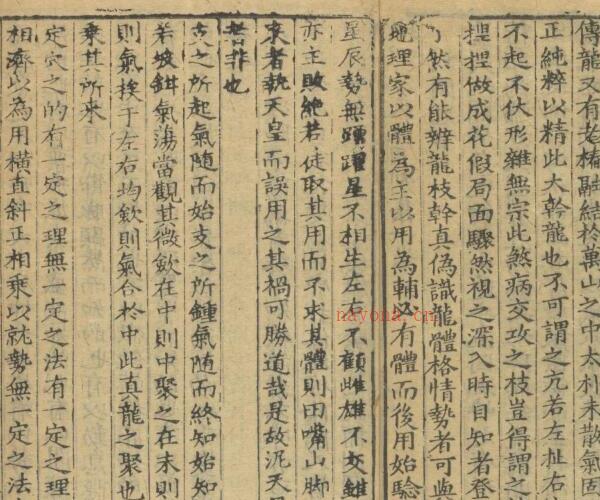 傳龍又有老構融結於萬山之中太朴未散氣固
正純粹以精此大幹龍也不可謂之亢若左扯右
不起不伏形雜無宗此煞病交攻之枝豈得謂之
捏揑做成花假局面驟然視之深入時目知者登
然有能辨龍枝幹真偽識龍體格情勢者可與
地理家以體為主以用為輔必有體而後用始驗
星辰勢無踴躍星不相生左右不顧雌雄不交雖
亦主敗絶若徒取其用而不求其體則田嘴山脚
來者執天皇而誤用之其禍可勝道哉是故泥天
者非也
支之所起氣隨而始支之所鍾氣隨而終知始知
若坡鉗氣蕩當觀其微斂在中則中聚之在末則
則氣挨于左右均斂則氣合於中此真龍之聚也
乘其所來
定穴之的有一定之理無一定之法有一定之理
相濟以為用横直斜正相乘以就勢無一定之法
nayona.cn